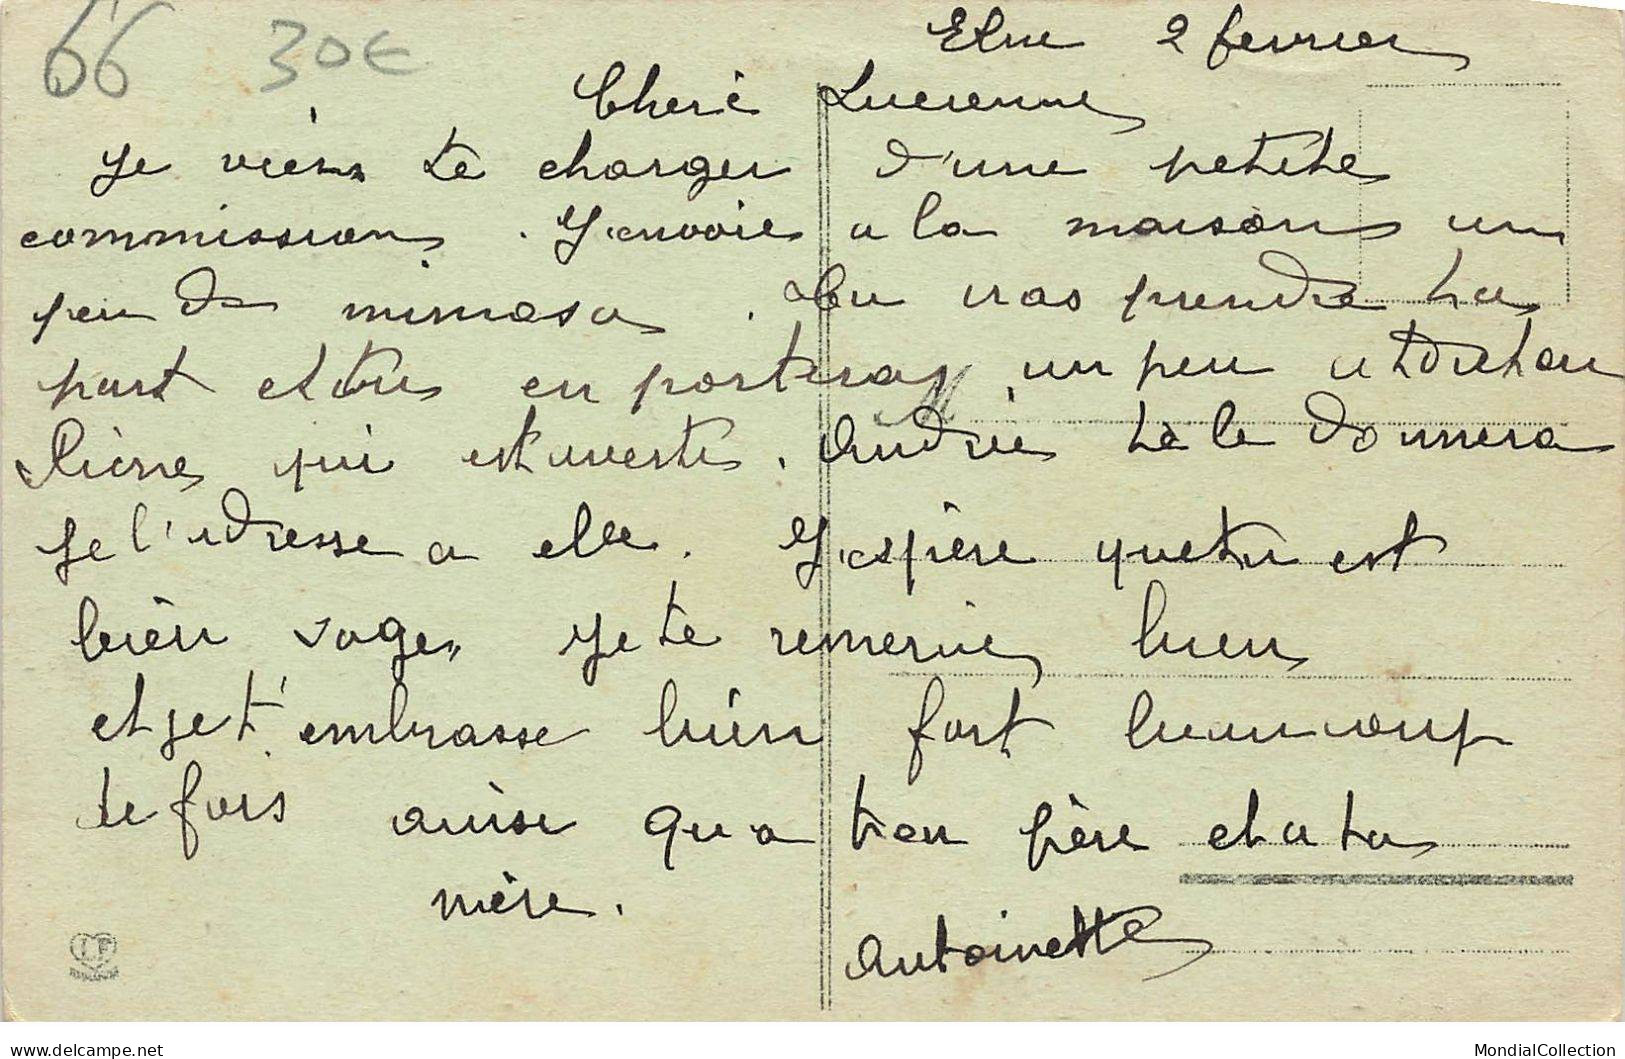 66 30€
Elne 2 fevrier
Cheré Lucienne
Je viens te charger d'une petite
commission. J'envoie a la maison un
peu de mimosa. Tu iras prendre ta
part et tu en porteras un peu
qui est Andrée te le donnera
Je l'adresse a elle. J'espère que tu est
bien sage. Je te remercie bien
et je t'embrasse bien fort beaucoup
de fois ainsi qu a ton père et a ta
mère.
Antoinette
LF
MondialCollection
https://www.delcampe.net